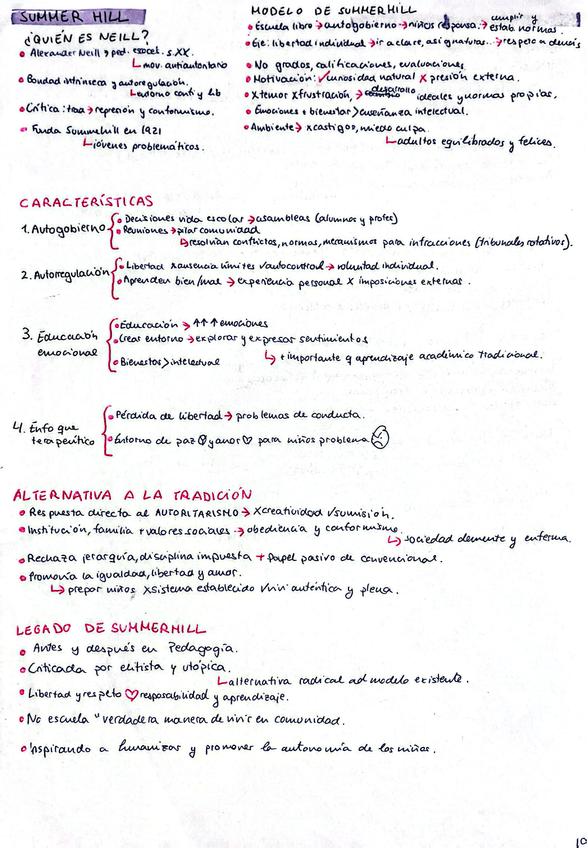 SUMMER HILL
¿QUIÉN ES NEILL?
• Alexander Neill → ped. escocé. s.XX.
↳ mov. antiautoritario
• Bondad intrínseca y autoregulación.
↳ entorno conf. y lib
• Crítica: trad → represión y conformismo.
• Funda Summerhill en 1921
↳ jóvenes problemáticos.
MODELO DE SUMMERHILL
• Escuela libre → autogobierno → niños responsa. → cumplir y estab. normas.
• Eje: libertad individual → ir a clase, asignaturas.. → respeto a demás
• No grados, calificaciones, evaluaciones
• Motivación: ✓curiosidad natural X presión externa.
• X temor X frustración, → desarrollo ideales y normas propias.
• Emociones + bienestar > enseñanza intelectual.
• Ambiente → X castigos, miedo culpa.
↳ adultos equilibrados y felices.
CARACTERÍSTICAS
1. Autogobierno
• Decisiones vida escolar → asambleas (alumnos y profes)
• Reuniones → pilar comunidad
↳ resolvían conflictos, normas, mecanismos para infracciones (tribunales rotativos).
2. Autorregulación
• Libertad X ausencia límites ✓autocontrol → voluntad individual.
• Aprenden bien/mal → experiencia personal X imposiciones externas.
3. Educación emocional
• Educación → ↑↑↑ emociones
• Crear entorno → explorar y expresar sentimientos
• Bienestar > intelectual
↳ + importante q aprendizaje académico tradicional.
4. Enfoque terapéutico
• Pérdida de libertad → problemas de conducta.
• Entorno de paz y amor ♡ para niños problema
ALTERNATIVA A LA TRADICIÓN
• Respuesta directa al AUTORITARISMO → X creatividad ✓sumisión.
• Institución, familia + valores sociales → obediencia y conformismo.
↳ sociedad demente y enferma.
• Rechaza jerarquía, disciplina impuesta + papel pasivo de convencional.
• Promovía la igualdad, libertad y amor.
↳ prepar niños X sistema establecido ✓vivir auténtica y plena.
LEGADO DE SUMMERHILL
• Antes y después en Pedagogía.
• Criticada por elitista y utópica.
↳ alternativa radical ad modelo existente.
• Libertad y respeto ♡ responsabilidad y aprendizaje.
• No escuela "verdadera manera de vivir en comunidad.
• Inspirando a humanizar y promover la autonomía de los niños.